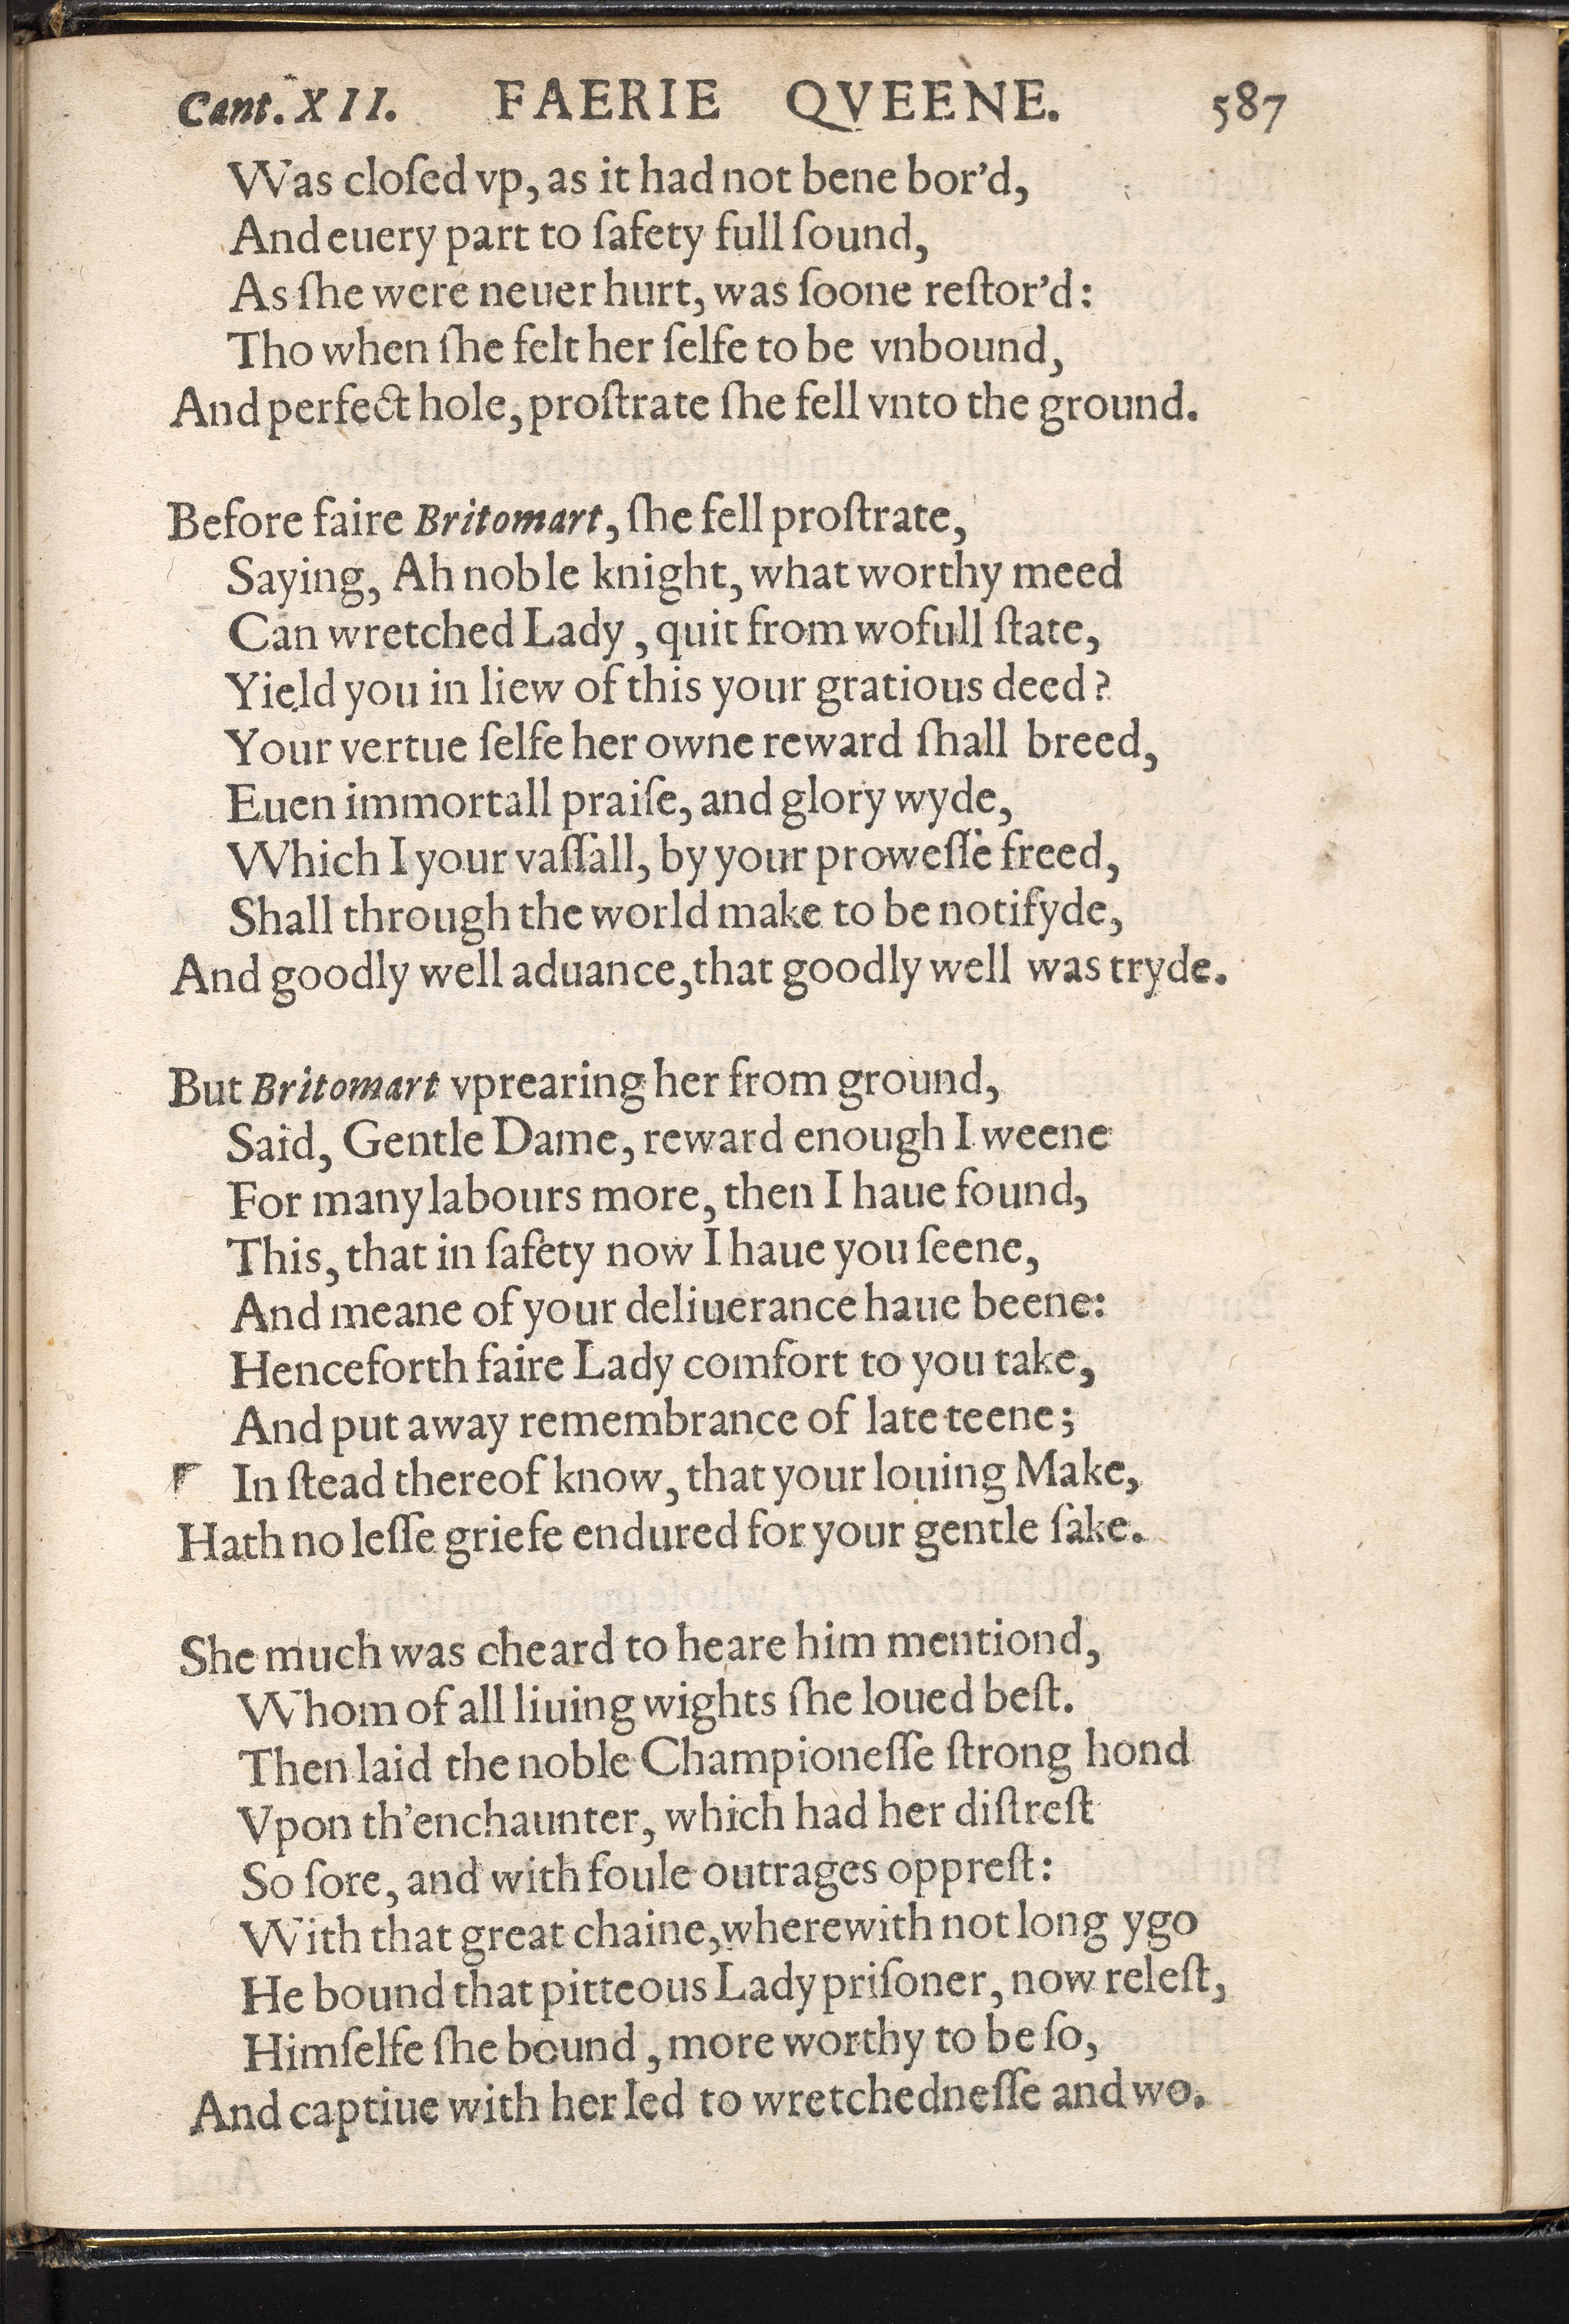 Cant. XII. FAERIE QVEENE. 587
Was cloſed vp, as it had not bene bor’d,
And euery part to ſafety full ſound,
As ſhe were neuer hurt, was ſoone reſtor’d:
Tho when ſhe felt her ſelfe to be vnbound,
And perfect hole, proſtrate ſhe fell vnto the ground.
Before faire Britomart, ſhe fell proſtrate,
Saying, Ah noble knight, what worthy meed
Can wretched Lady, quit from wofull ſtate,
Yield you in liew of this your gratious deed?
Your vertue ſelfe her owne reward ſhall breed,
Euen immortall praiſe, and glory wyde,
Which I your vaſſall, by your proweſſe freed,
Shall through the world make to be notifyde,
And goodly well aduance, that goodly well was tryde.
But Britomart vprearing her from ground,
Said, Gentle Dame, reward enough I weene
For many labours more, then I haue found,
This, that in ſafety now I haue you ſeene,
And meane of your deliuerance haue beene:
Henceforth faire Lady comfort to you take,
And put away remembrance of late teene;
In ſtead thereof know, that your louing Make,
Hath no leſſe griefe endured for your gentle ſake.
She much was cheard to heare him mentiond,
Whom of all liuing wights ſhe loued beſt.
Then laid the noble Championeſſe ſtrong hond
Vpon th’enchaunter, which had her diſtreſt
So ſore, and with foule outrages oppreſt:
With that great chaine, wherewith not long ygo
He bound that pitteous Lady priſoner, now releſt,
Himſelfe ſhe bound, more worthy to be ſo,
And captiue with her led to wretchedneſſe and wo.